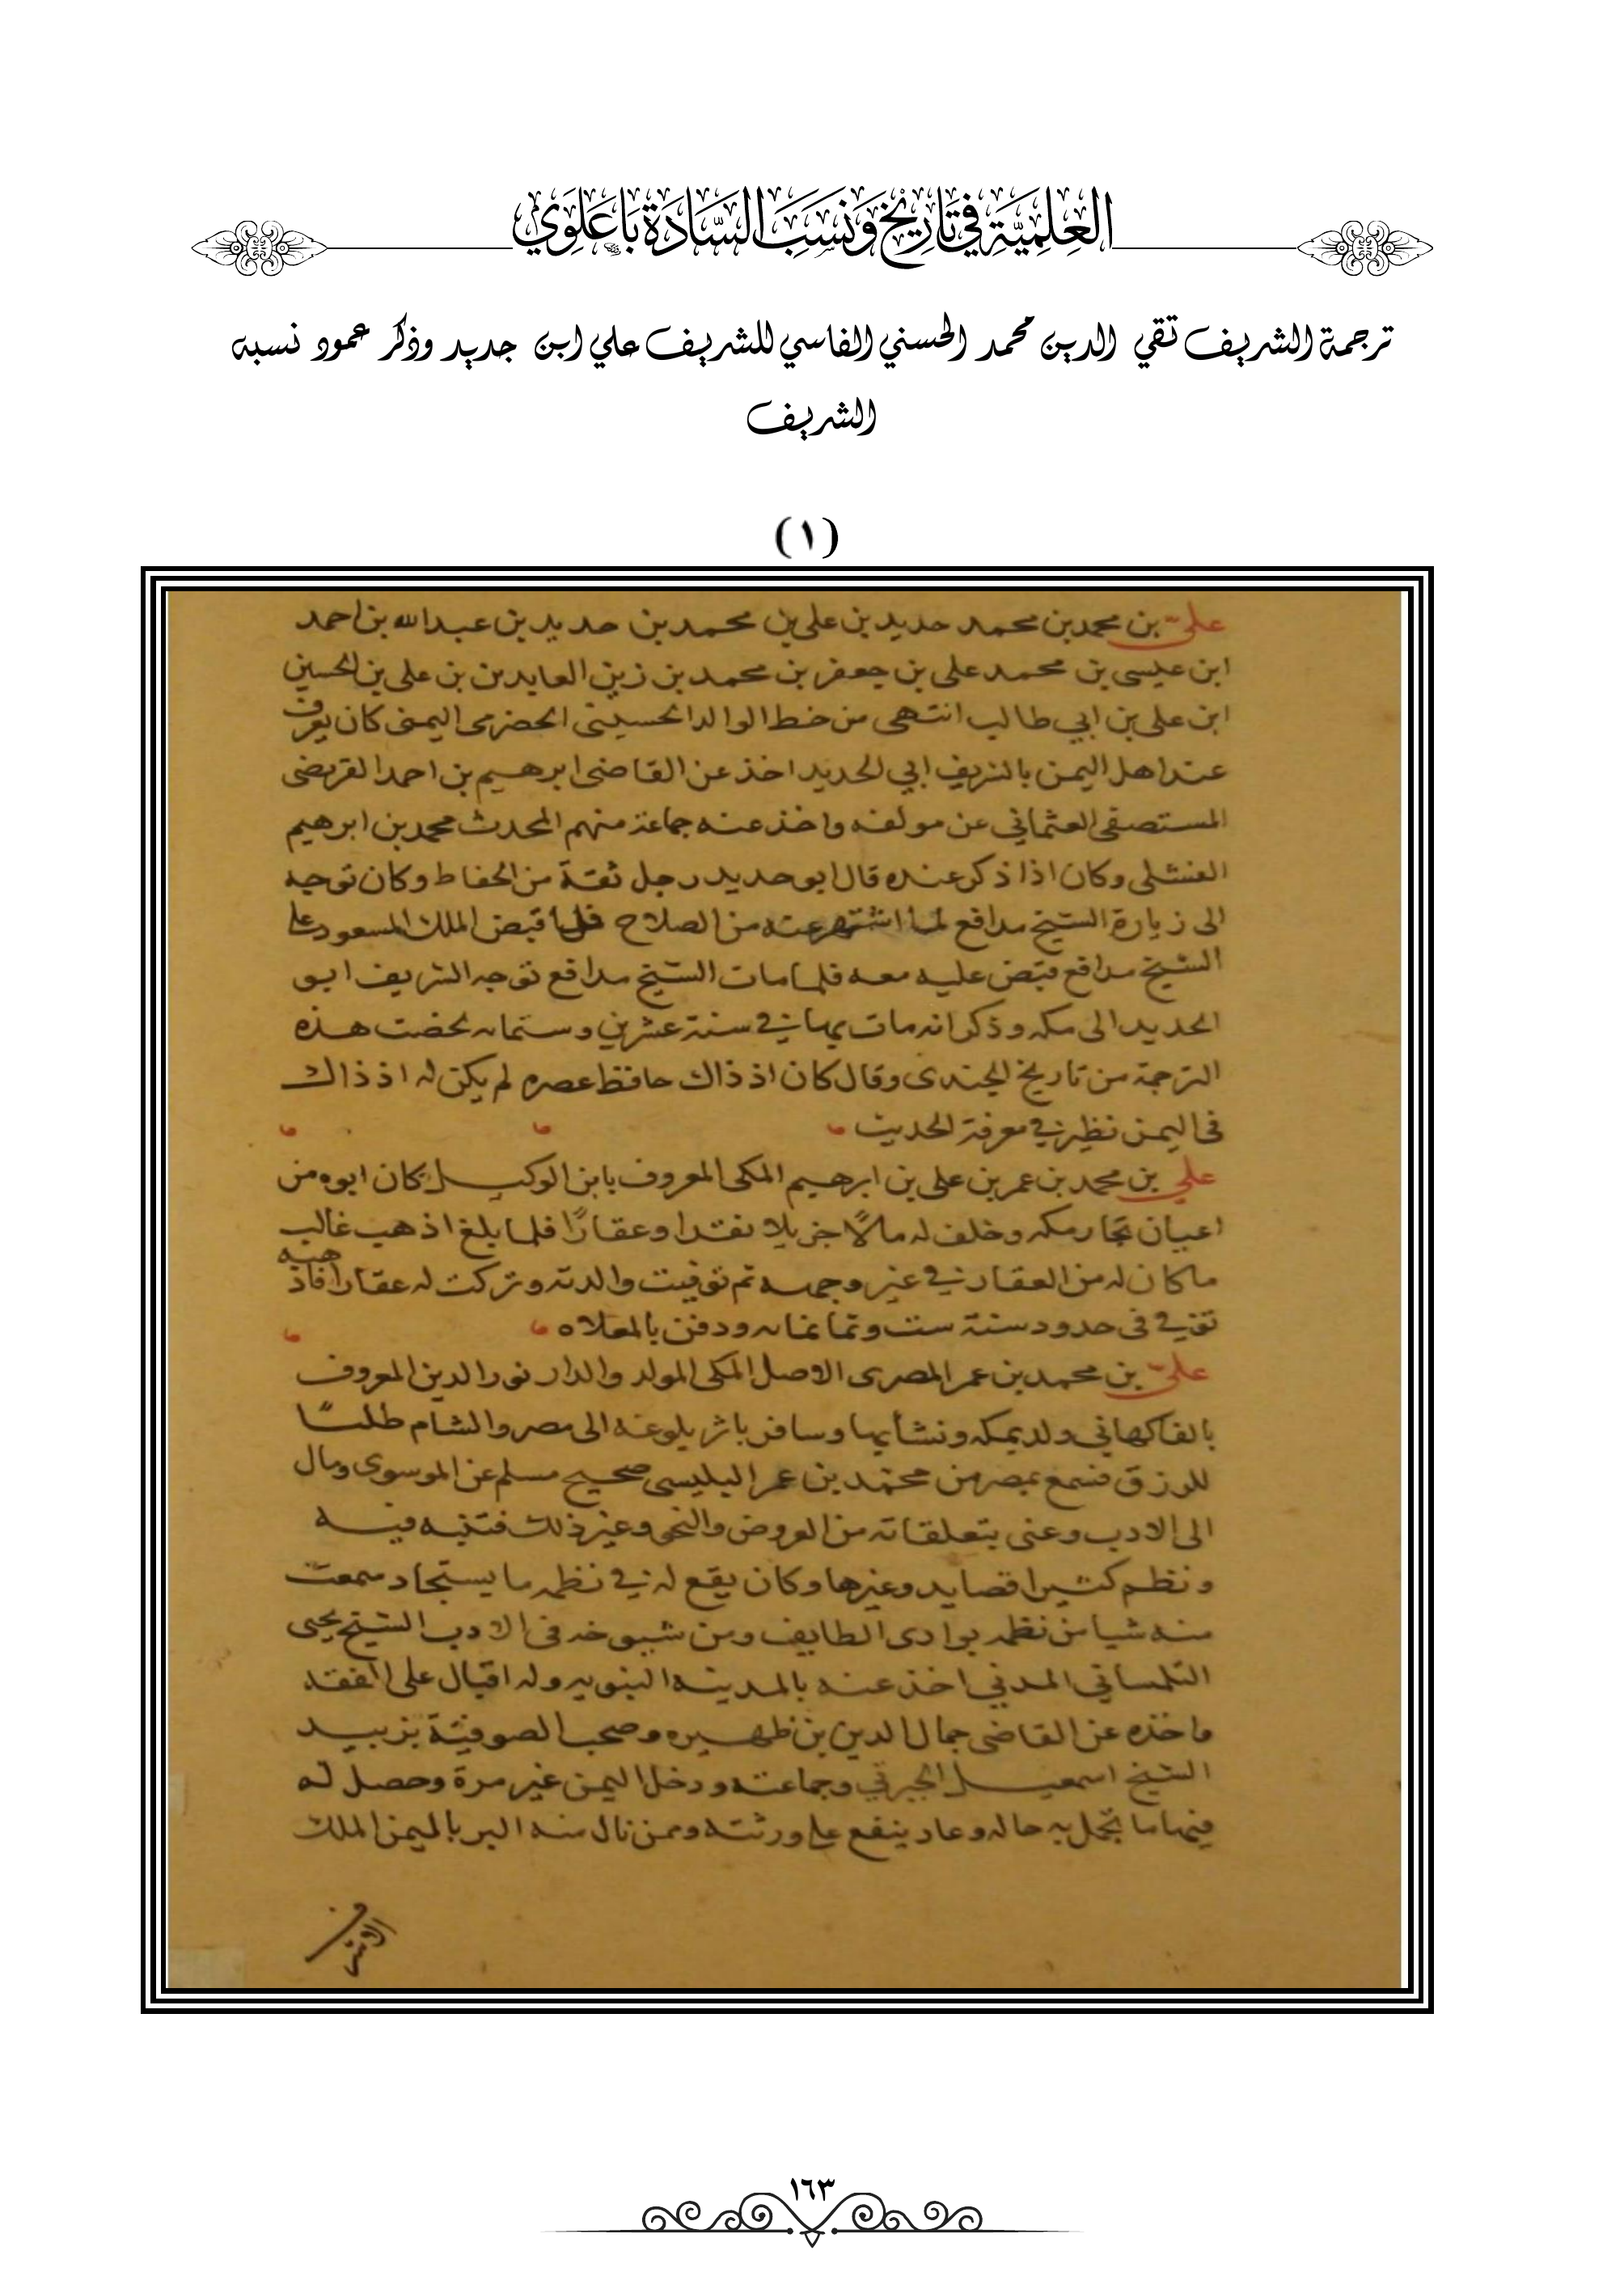 العِلْمِيَّةِ فِي تَارِيْخِ وَنَسَبِ السَّادَةِ بَاعَلَوِي
ترجمة الشريف تقي الدين محمد الحسني الفاسي للشريف علي ابن جديد وذكر عمود نسبه
الشريف
(١)
علىّ بن محمد بن محمد حديد بن على بن محمد بن حديد بن عبد الله بن احمد
ابن عيسى بن محمد على بن جعفر بن محمد بن زين العابدين بن على بن الحسين
ابن على بن ابي طالب انتهى من خط الوالد الحسينى الحضرمى اليمنى كان يعرف
عند اهل اليمن بالشريف ابي الحديد اخذ عن القاضى ابرهيم بن احمد القريضى
المستصفى العثمانى عن مولفه واخذ عنه جماعة منهم المحدث محمد بن ابرهيم
الفشلى وكان اذا ذكر عنده قال ابو حديد رجل ثقة من الحفاظ وكان توجه
الى زيارة الشيخ مدافع لما اشتهر عنه من الصلاح فلما قبض الملك المسعود على
الشيخ مدافع قبض عليه معه فلما مات الشيخ مدافع توجه الشريف ابو
الحديد الى مكه وذكر انه مات بها في سنة عشرين وستمايه لخصت هذه
الترجمة من تاريخ الجندى وقال كان اذ ذاك حافظ عصره لم يكن له اذ ذاك
فى اليمن نظير في معرفة الحديث
علي بن محمد بن عمر بن على بن ابرهيم المكى المعروف بابن الوكيل كان ابوه من
اعيان تجار مكه وخلف له مالًا جزيلا نقدا وعقارًا فلما بلغ اذهب غالب
ما كان له من العقار في غير وجهه ثم توفيت والدته وتركت له عقارا فاذهبه
توفي فى حدود سنة ست وثمانمايه ودفن بالمعلاه
علىّ بن محمد بن عمر المصرى الاصل المكى المولد والدار نور الدين المعروف
بالفاكهاني ولد بمكه ونشأ بها وسافر باثر بلوغه الى مصر والشام طلبًا
للرزق فسمع بمصر من محمد بن عمر البلبيسى صحيح مسلم عن الموسوى ومال
الى الادب وعنى بتعلقاته من العروض والنحو وغير ذلك فتنبه فيه
ونظم كثيرا قصايد وغيرها وكان يقع له في نظمه ما يستجاد سمعت
منه شيا من نظمه بوادى الطايف ومن شيوخه فى الادب الشيخ يحيى
التلمساني المدني اخذ عنه بالمدينه النبويه وله اقبال على الفقه
واخذه عن القاضى جمال الدين بن ظهيره وصحب الصوفيّة بزبيد
الشيخ اسمعيل الجبرتي وجماعته ودخل اليمن غير مرة وحصل له
فيها ما تجمل به حاله وعاد ينفع على ورثته وممن نال منه البر باليمن الملك
الاشرف
١٦٣